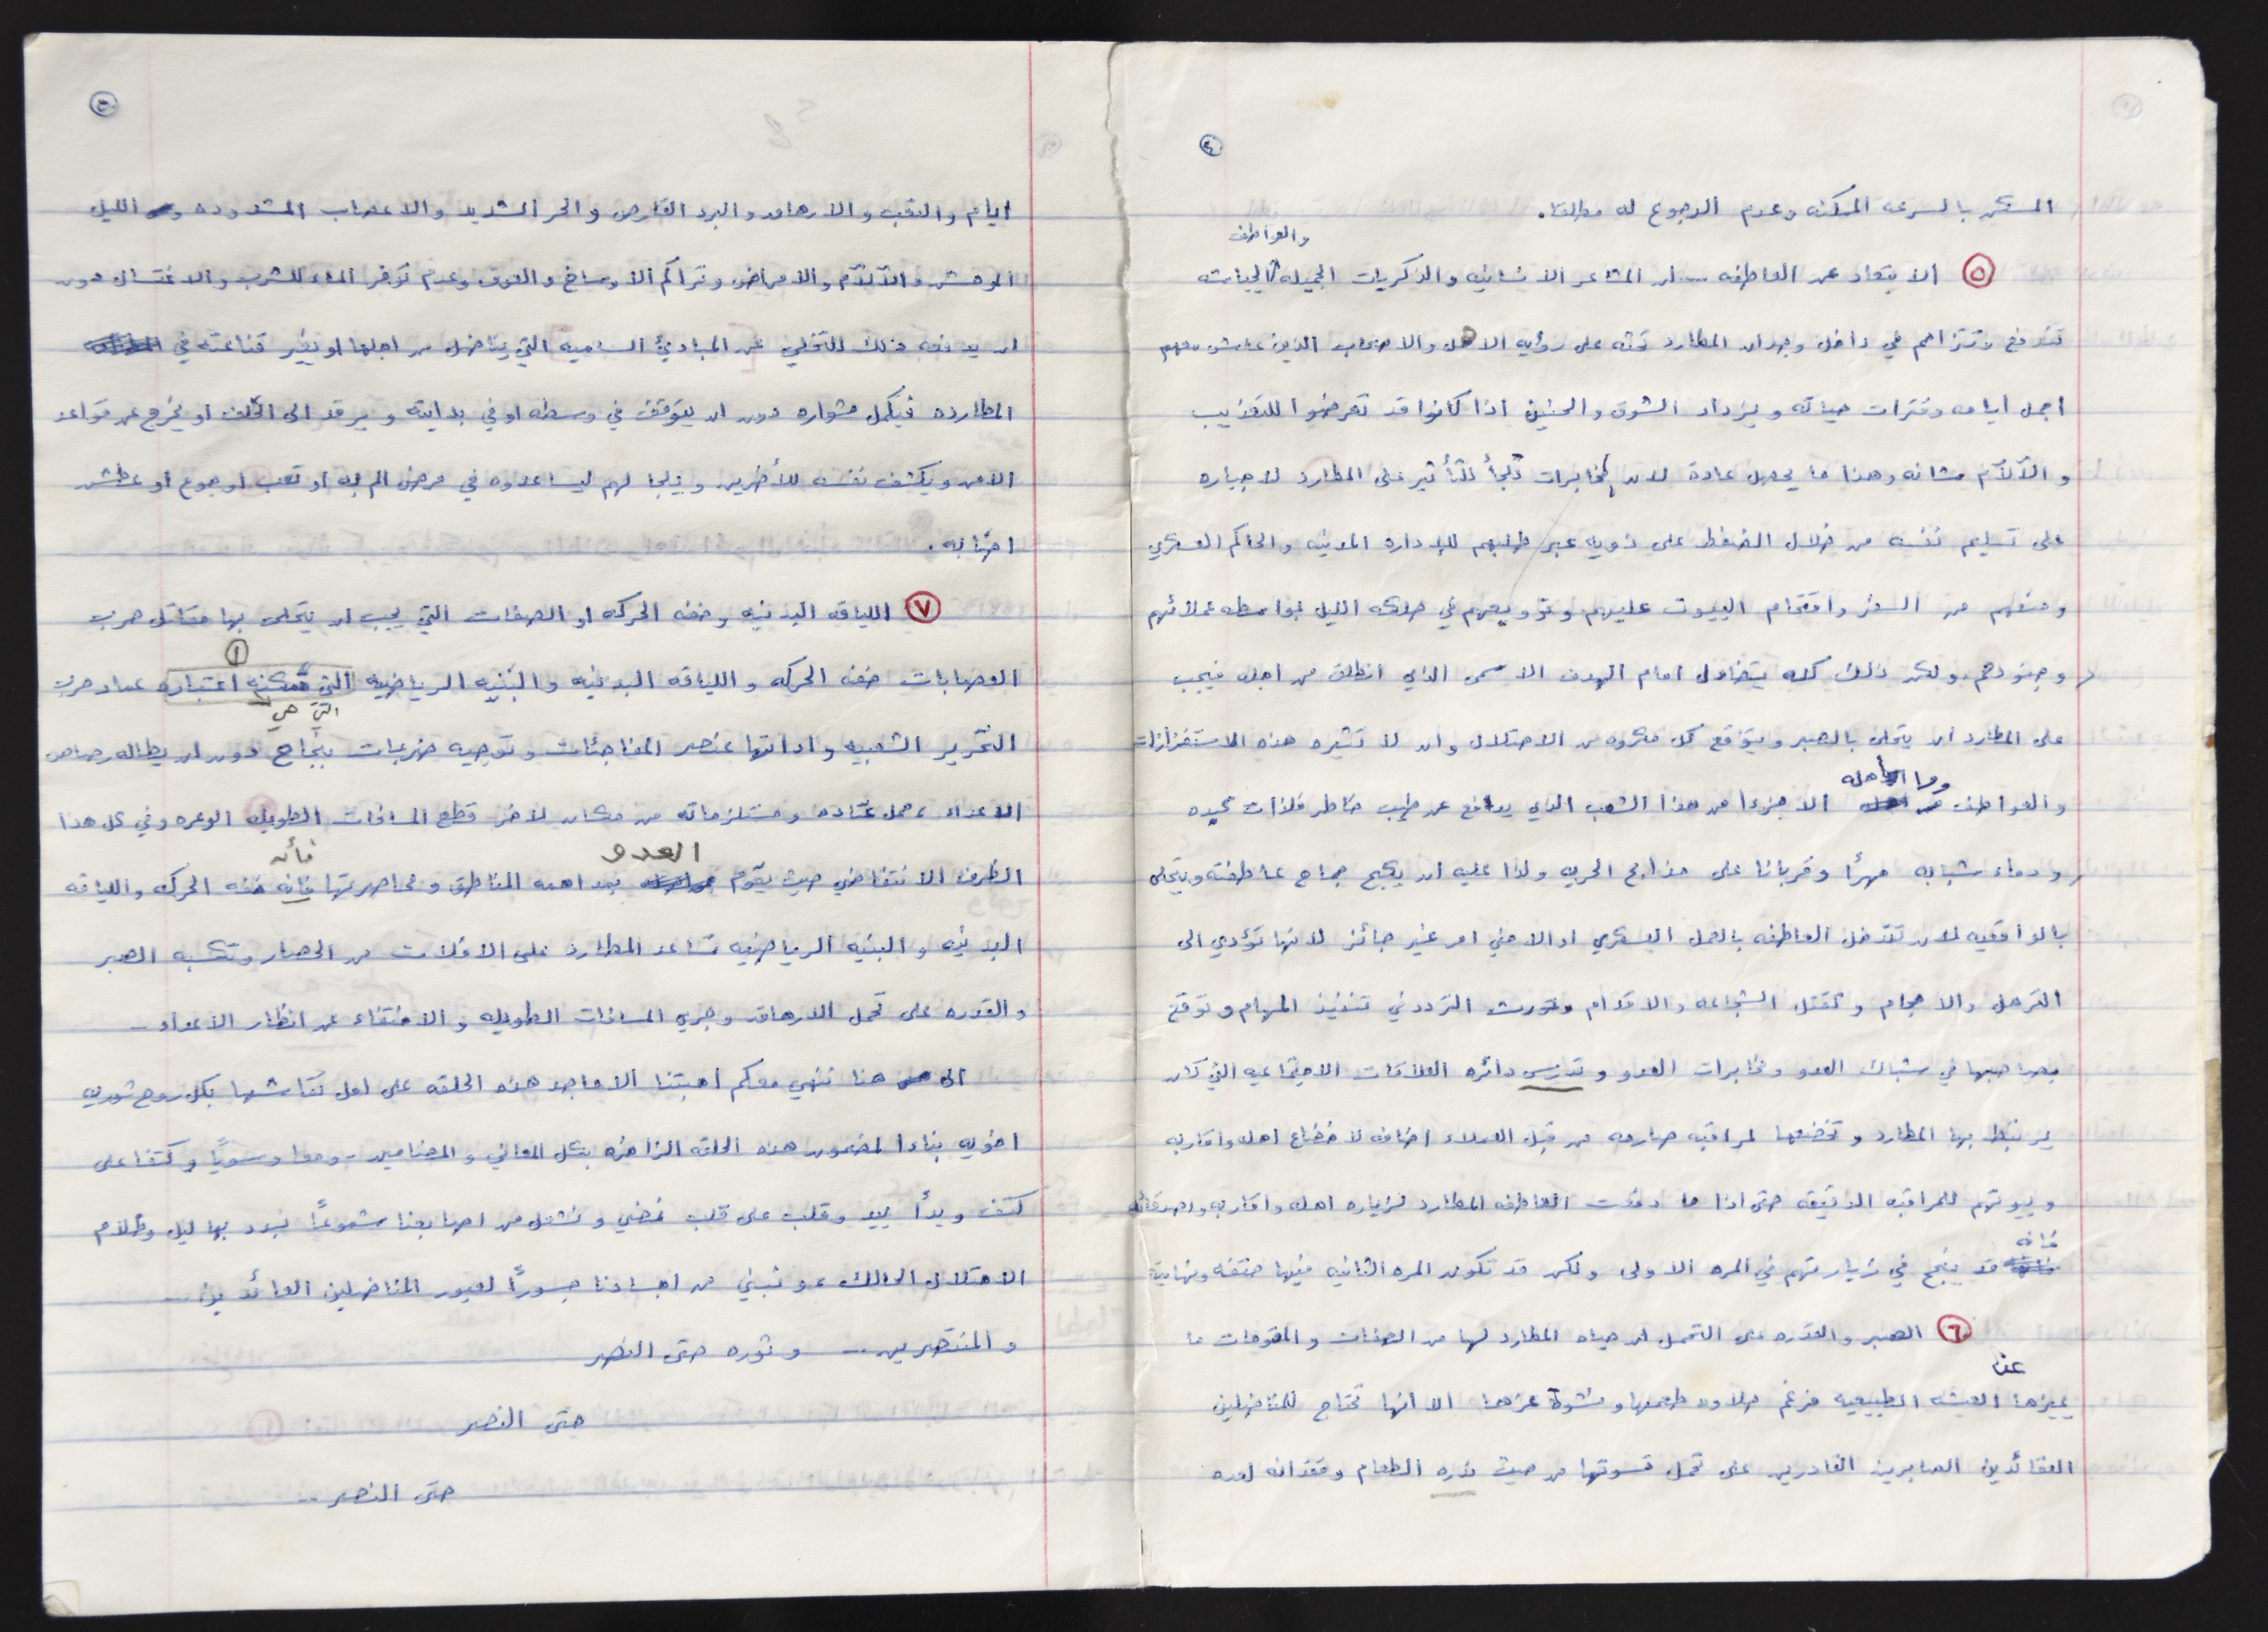 ٤
المسكن بالسرعه الممكنه وعدم الرجوع له مطلقا.
والعواطف
٥ الابتعاد عن العاطفه .. ان المشاعر الانسانيه والذكريات الجميله الجياشه
تندفع وتتزاحم في داخل وجدان المطارد تحثه على رؤيه الاهل والاصحاب الذين عايش معهم
اجمل ايامه وفترات حياته ويزداد الشوق والحنين اذا كانوا قد تعرضوا للتعذيب
والآلآم مشانه وهذا ما يحصل عادة لان المخابرات تلجأ للتأثير على المطارد لاجباره
على تسليم نفسه من خلال الضغط على ذويه عبر طلبهم للإداره المدنيه والحاكم العسكري
ومنعهم من السفر واقتحام البيوت عليهم وترويعهم في حلكه الليل بواسطه عملائهم
وجنودهم. ولكن ذلك كله يتضاءل امام الهدف الاسمى الذي انطلق من اجله فيجب
على المطارد ان يتحلى بالصبر ويتوقع كل مكروه من الاحتلال وان لا تثيره هذه الاستفزازات
وما اهله
والعواطف الا جزءا من هذا الشعب الذي يدافع عن طيب خاطر فلذات كبده
ودماء شبابه مهرأ وقربانا على مذابح الحريه ولذا عليه ان يكبح جماح عاطفته ويتحلى
بالواقعيه لان تدخل العاطفه بالعمل العسكري او الامني امر غير جائز لانها تؤدي الى
الترهل والاحجام وتقتل الشجاعه والاقدام وتورث التردد في تنفيذ المهام وتوقع
بصاحبها في شباك العدو ومخابرات العدو وتدرس دائره العلاقات الاجتماعيه التي كان
يرتبط بها المطارد وتخضعها لمراقبه صارمه من قبل العملاء اضافه لاخضاع اهله واقاربه
وبيوتهم للمراقبه الدقيقه حتى اذا ما دفعت العاطفه المطارد لزياره اهله واقاربه واصدقائه
فانه
قد ينجح في زيارتهم في المره الاولى ولكن قد تكون المره الثانيه فيها حتفه ونهايته
٦ الصبر والقدره على التحمل ان حياه المطارد لها من الصفات والمقومات ما
عن
يميزها العيشه الطبيعيه فرغم حلاوه طعمها ونشوة عزها الا انها تحتاج للمناضلين
العقائدين الصابرين القادرين على تحمل قسوتها من حيث ندره الطعام وفقدانه لعده
٥
ايام والتعب والارهاق والبرد القارص والحر الشديد والاعصاب المشدوده و الليل
الموحش والآلآم والامراض وتراكم الاوساخ والعرق وعدم توفر الماء للشرب والاغتسال دون
ان يدفعه ذلك للتخلي عن المبادئ الساميه التي يناضل من اجلها او يغير قناعته في
المطارده فيكمل مشواره دون ان يتوقف في وسطه او في بدايته ويرتد الى الخلف او يخرج عن قواعد
الامن ويكشف نفسه للأخرين ويلجا لهم ليساعدوه في مرض الم به او تعب او جوع او عطش
اصابه.
٧ اللياقه البدنيه وخفه الحركه او الصفات التي يجب ان يتحلى بها مقاتل حرب
١
العصابات خفه الحركه واللياقه البدنيه والبنيه الرياضيه التي تمكنه اعتباره عماد حرب
التي هي
التحرير الشعبيه واداتها عنصر المفاجئات وتوجيه ضربات بنجاح دون ان يطاله رصاص
الاعداء، حمل عتاده ومستلزماته من مكان لاخر قطع المسافات الطويله الوعره وفي كل هذا
العدو فأن
الظرف الانتفاضي حيث يقوم بمداهمه المناطق ومحاصرتها فانه خفه الحركه واللياقه
البدنيه والبنيه الرياضيه تساعد المطارد على الافلات من الحصار وتكسبه الصبر
والقدره على تحمل الارهاق وجري المسافات الطويله والاختفاء عن انظار الاعداء ..
الى هنا ننهي معكم احبتنا الاماجد هذه الحلقه على امل نقاشها بكل روح ثوريه
اخويه بناءا لمضمون هذه الحلقه الزاخره بكل المعاني والمضامين .. ومعا وسوياً وكتفا على
كتف ويدأ بيد وقلب على قلب نمضي ونشعل من اصابعنا شموعاً نبدد بها ليل وظلام
الاحتلال الحالك، ونبني من اجسادنا جسورًا لعبور المناضلين العائدين ..
والمنتصرين .. وثوره حتى النصر
حتى النصر
حتى النصر ..